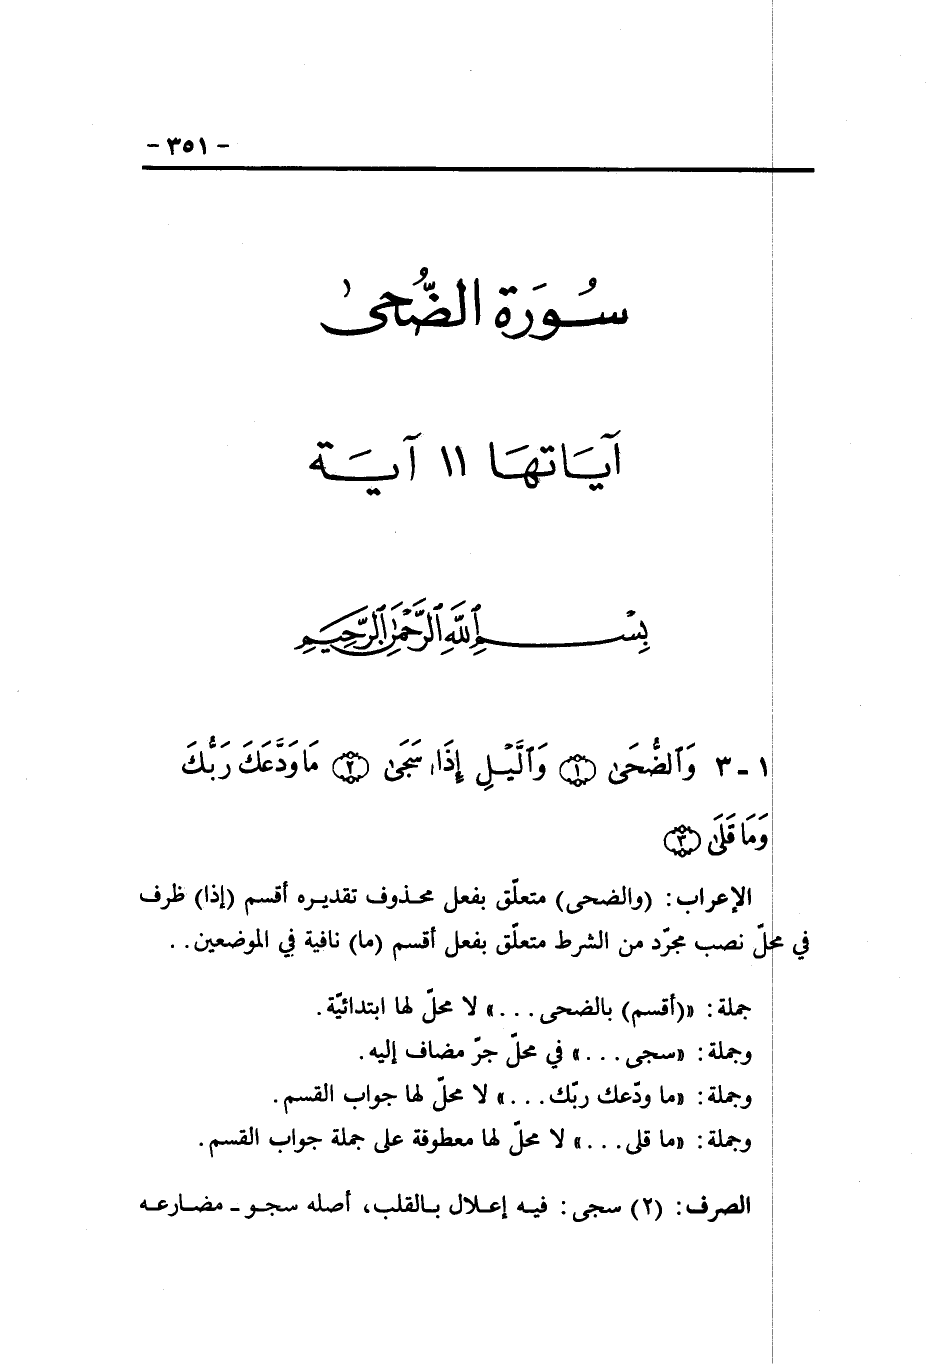 - ٣٥١ -
سُورَة الضُّحىٰ
آيَاتهَا ١١ آيَة
بِسْمِ ٱللَّهِ ٱلرَّحْمَٰنِ ٱلرَّحِيمِ
١ - ٣ وَٱلضُّحَىٰ ﴿١﴾ وَٱلَّيْلِ إِذَا سَجَىٰ ﴿٢﴾ مَا وَدَّعَكَ رَبُّكَ
وَمَا قَلَىٰ ﴿٣﴾
الإعراب: (والضحى) متعلّق بفعل محذوف تقديره أقسم (إذا) ظرف
في محلّ نصب مجرّد من الشرط متعلّق بفعل أقسم (ما) نافية في الموضعين..
جملة: «(أقسم) بالضحى...» لا محلّ لها ابتدائيّة.
وجملة: «سجى...» في محلّ جرّ مضاف إليه.
وجملة: «ما ودّعك ربّك...» لا محلّ لها جواب القسم.
وجملة: «ما قلى...» لا محلّ لها معطوفة على جملة جواب القسم.
الصرف: (٢) سجى: فيه إعلال بالقلب، أصله سجو - مضارعه